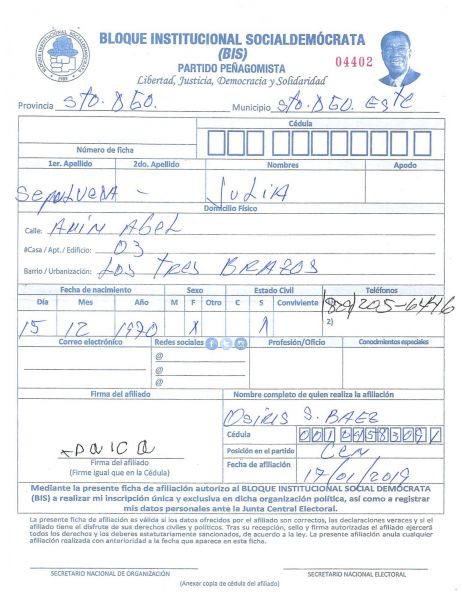 BLOQUE INSTITUCIONAL SOCIALDEMÓCRATA
(BIS)
PARTIDO PEÑAGOMISTA
04402
Libertad, Justicia, Democracia y Solidaridad
Provincia Sto. Dgo. Municipio Sto. Dgo. Este
Cédula
Número de ficha
1er. Apellido 2do. Apellido Nombres Apodo
Sepulveda - Julia
Domicilio Físico
Calle: Amin Abel
#Casa / Apt. / Edificio: 03
Barrio / Urbanización: Los Tres Brazos
Fecha de nacimiento Sexo Estado Civil Teléfonos
Día Mes Año M F Otro C S Conviviente 205-6446
15 12 1970 X 2)
Correo electrónico Redes sociales Profesión/Oficio Conocimientos especiales
@
@
@
Firma del afiliado Nombre completo de quien realiza la afiliación
Osiris S. Baez
Cédula
Posición en el partido CEN
Firma del afiliado
(Firme igual que en la Cédula)
Fecha de afiliación 17/01/2019
Mediante la presente ficha de afiliación autorizo al BLOQUE INSTITUCIONAL SOCIAL DEMÓCRATA
(BIS) a realizar mi inscripción única y exclusiva en dicha organización política, así como a registrar
mis datos personales ante la Junta Central Electoral.
La presente ficha de afiliación es válida si los datos ofrecidos por el afiliado son correctos, las declaraciones veraces y si el
afiliado tiene el disfrute de sus derechos civiles y políticos. Tras su recepción, sello y firma autorizadas el afiliado ejercerá
todos los derechos y los deberes estatutariamente sancionados, de acuerdo a la ley. La presente afiliación anula cualquier
afiliación realizada con anterioridad a la fecha que aparece en esta ficha.
SECRETARIO NACIONAL DE ORGANIZACIÓN SECRETARIO NACIONAL ELECTORAL
(Anexar copia de cédula del afiliado)